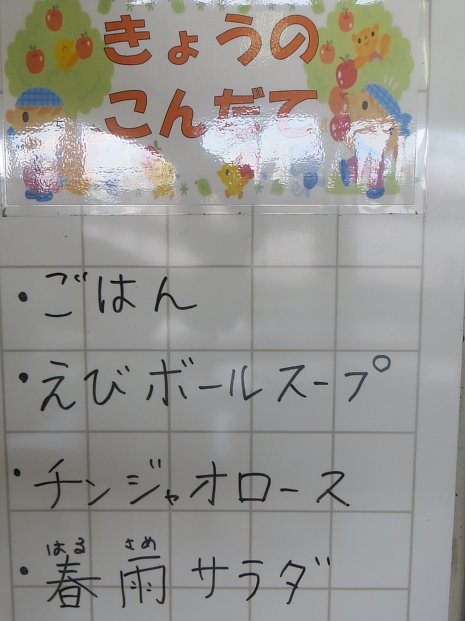 きょうの
こんだて
・ごはん
・えびボールスープ
・チンジャオロース
はる さめ
・春雨サラダ